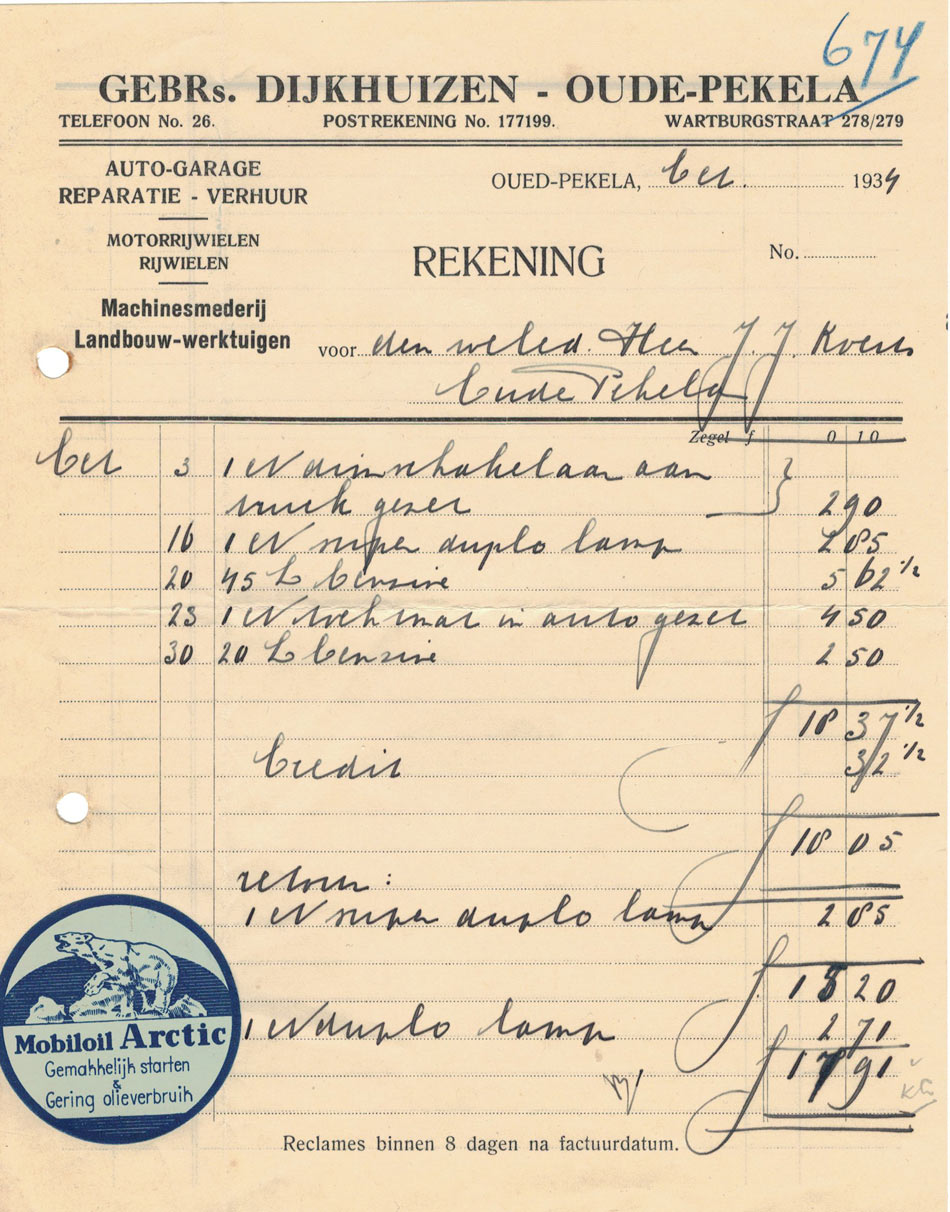 674
GEBRs. DIJKHUIZEN - OUDE-PEKELA
TELEFOON No. 26. POSTREKENING No. 177199. WARTBURGSTRAAT 278/279
AUTO-GARAGE
REPARATIE - VERHUUR
OUED-PEKELA, Oct. 1934
MOTORRIJWIELEN
RIJWIELEN
REKENING
No.
Machinesmederij
Landbouw-werktuigen
voor den weled. Heer J. J.
Oude Pekela
Zegel f 0 10
Oct 3 1 N dimschakelaar aan
truck gezet 2 90
16 1 N super duplo lamp 2 85
20 45 L benzine 5 62 1/2
23 1 N in auto gezet 4 50
30 20 L benzine 2 50
f 18 37 1/2
Credit 32 1/2
f 18 05
retour:
1 N super duplo lamp 2 85
f 15 20
1 N duplo lamp 2 71
f 17 91
Mobiloil Arctic
Gemakkelijk starten
&
Gering olieverbruik
Reclames binnen 8 dagen na factuurdatum.